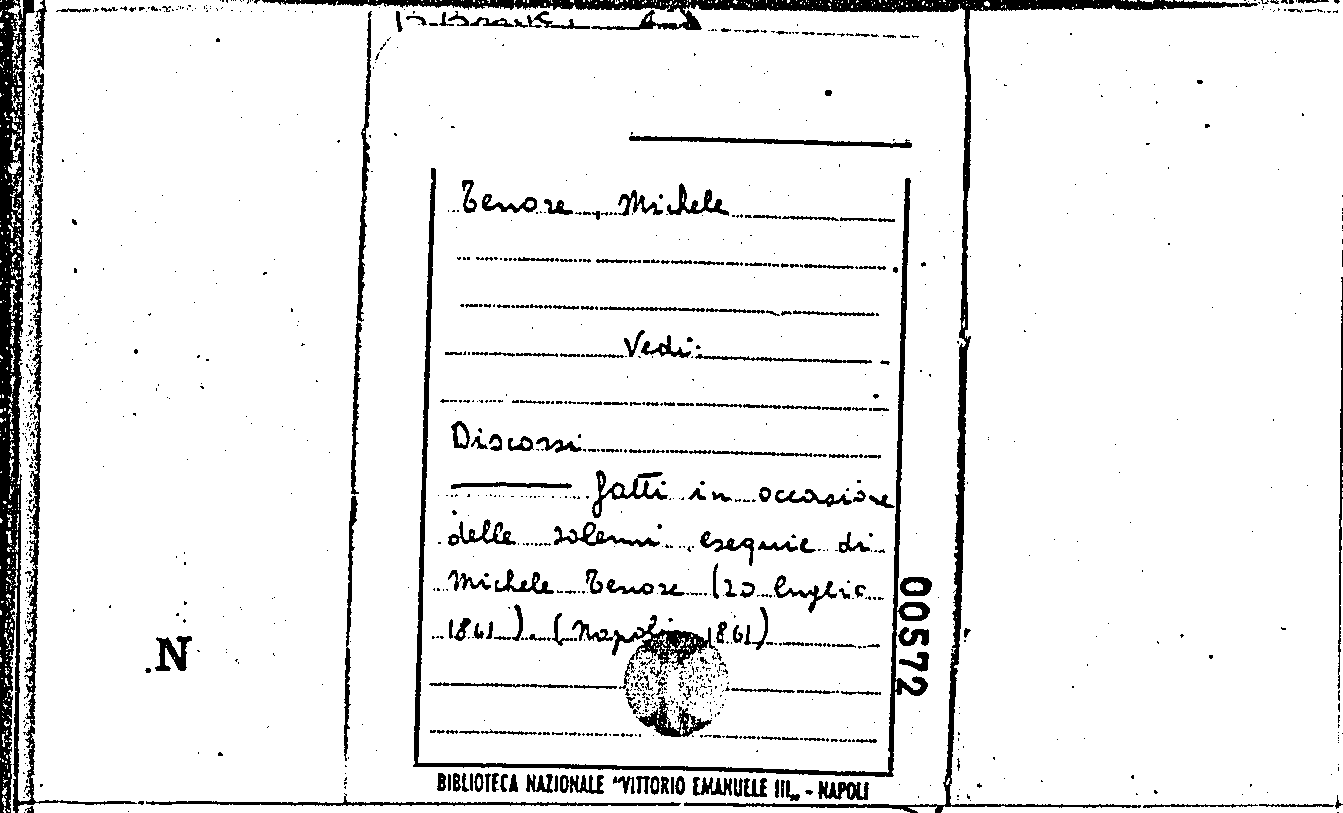 Tenore, Michele
Vedi:
Discorsi
fatti in occasione
delle solenni esequie di
Michele Tenore (20 luglio
1861). (Napoli, 1861)
00572
N
BIBLIOTECA NAZIONALE "VITTORIO EMANUELE III„ - NAPOLI